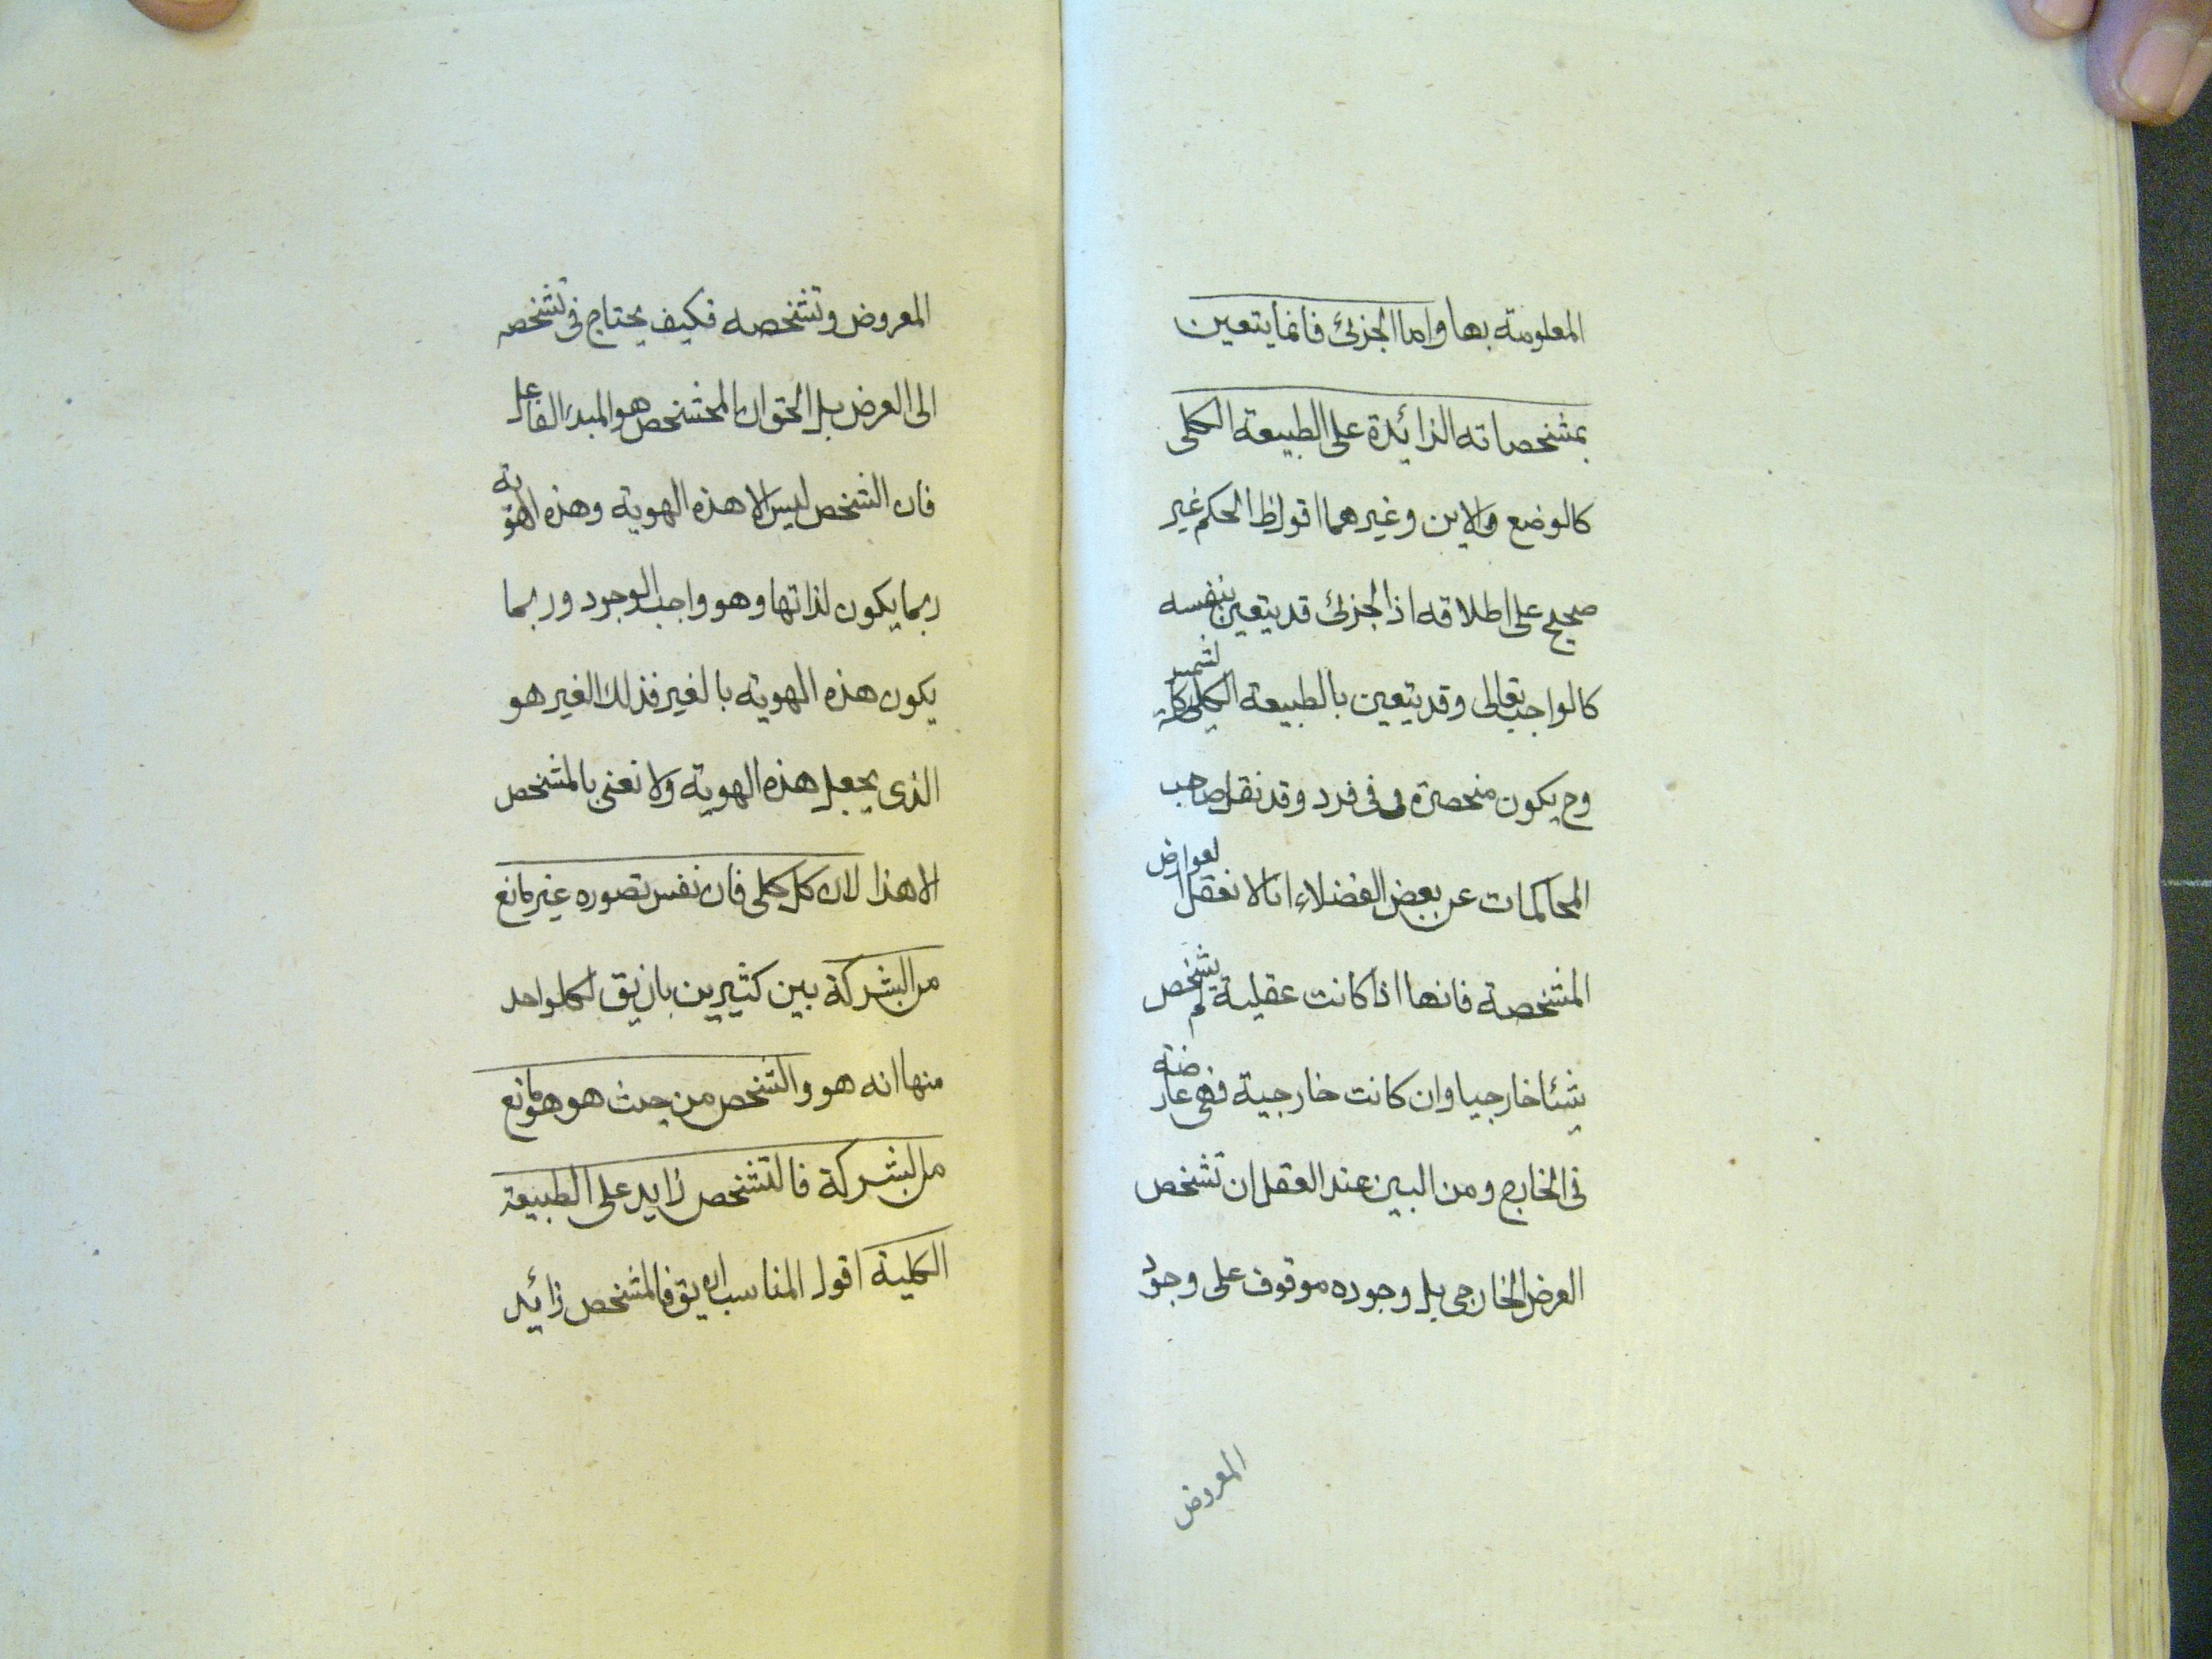 المعلومة بها واما الجزئ فانما يتعين
بمشخصاته الزائدة على الطبيعة الكلى
كالوضع والاين وغيرهما اقول ظ الحكم غير
صحيح على اطلاقه اذ الجزئ قد يتعين بنفسه
كالواجب تعالى وقد يتعين بالطبيعة الكلى كالشمس
وح يكون منحصرة فى فى فرد وقد نقل صاحب
المحاكمات عن بعض الفضلاء انا لا نعقل العوارض
المشخصة فانها اذا كانت عقلية لم يشخص
شئا خارجيا وان كانت خارجية فهى عارضة
فى الخارج ومن البين عند العقل ان تشخص
العرض الخارجى بل وجوده موقوف على وجود
المعروض
المعروض وتشخصه فكيف يحتاج فى تشخصه
الى العرض بل الحق ان المشخص هو المبدء الفاعل
فان الشخص ليس الا هذه الهوية وهذه الهوية
ربما يكون لذاتها وهو واجب الوجود وربما
يكون هذه الهوية بالغير فذلك الغير هو
الذى يجعل هذه الهوية ولا نعنى بالمشخص
الا هذا لان كل كلى فان نفس تصوره غير مانع
من الشركة بين كثيرين بان يق لكل واحد
منها انه هو والشخص من حيث هو هو مانع
من الشركة فالتشخص زايد على الطبيعة
الكلية اقول المناسب ان يق فالمشخص زائد